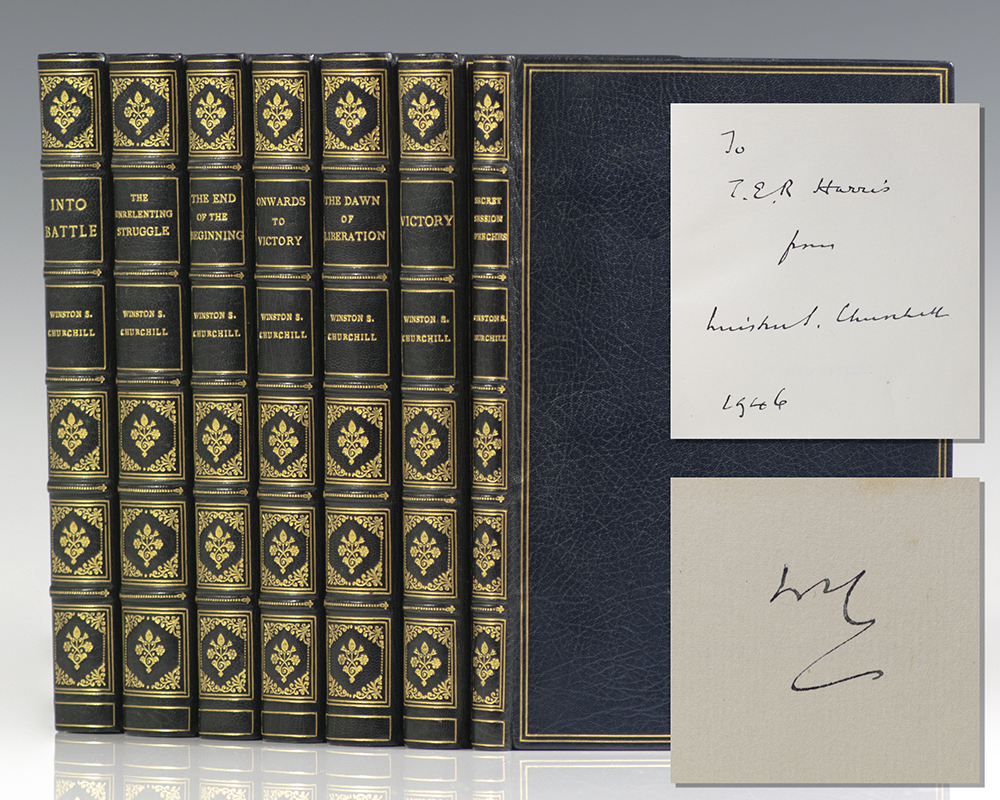 INTO
BATTLE
WINSTON S.
CHURCHILL
THE
UNRELENTING
STRUGGLE
WINSTON S.
CHURCHILL
THE END
OF THE
BEGINNING
WINSTON S.
CHURCHILL
ONWARDS
TO
VICTORY
WINSTON S.
CHURCHILL
THE DAWN
OF
LIBERATION
WINSTON S.
CHURCHILL
VICTORY
WINSTON S.
CHURCHILL
SECRET
SESSION
SPEECHES
WINSTON S.
CHURCHILL
To
T.E.R Harris
from
Winston S. Churchill
1946